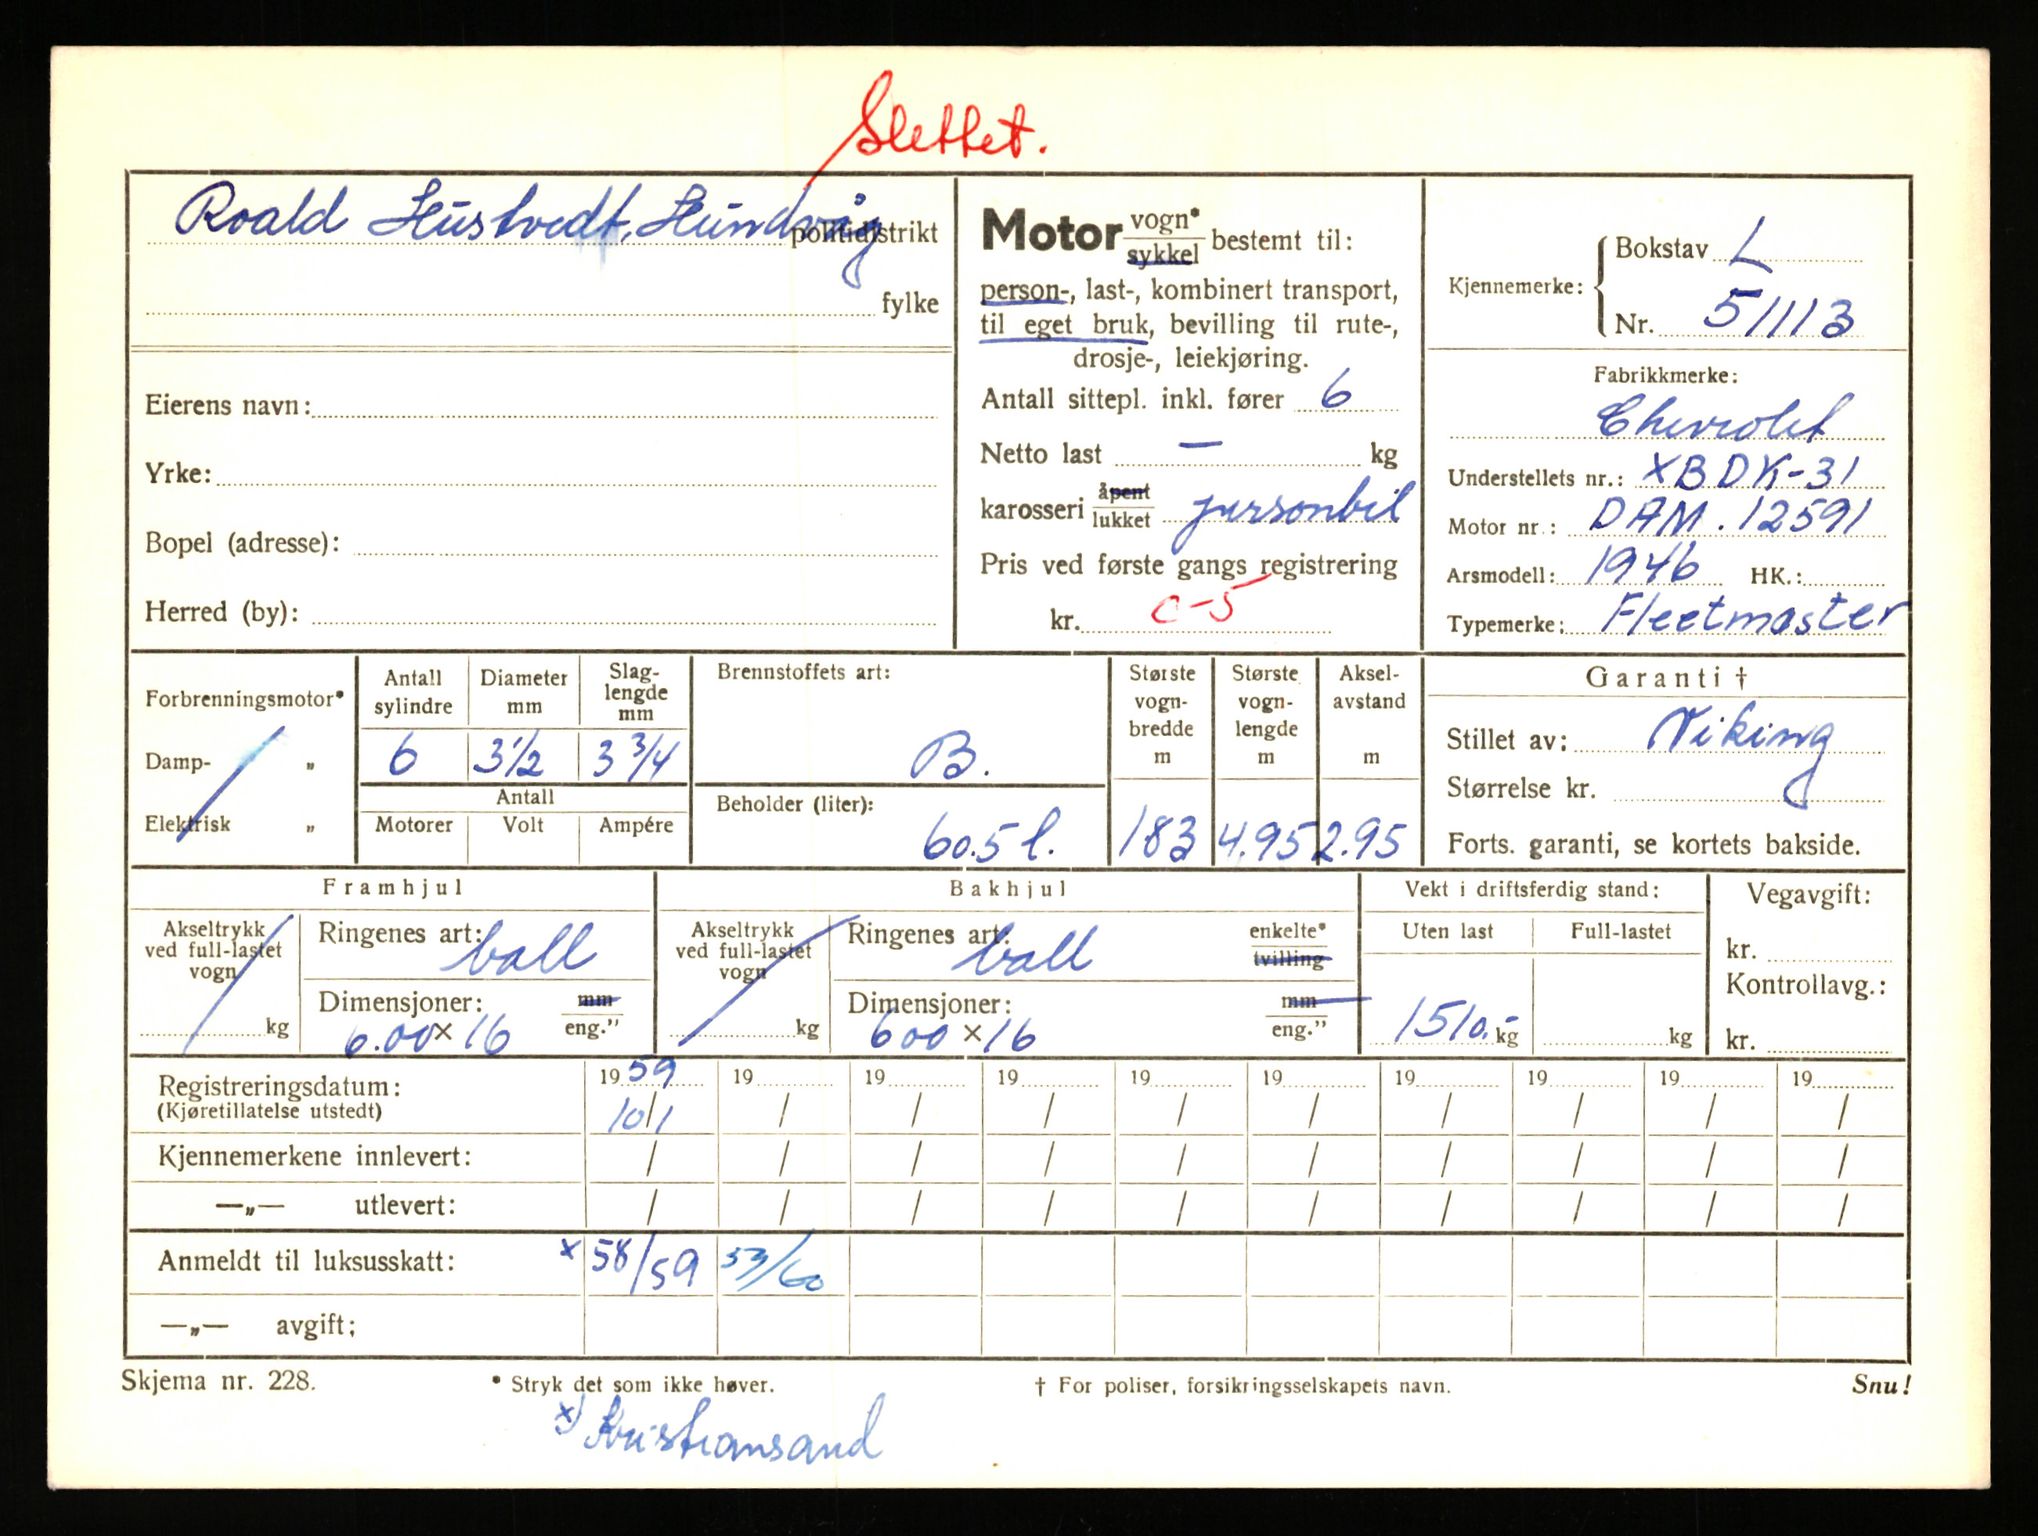 Slettet.
Roald Hustvedt, Hundvåg
politidistrikt
fylke
Eierens navn:
Yrke:
Bopel (adresse):
Herred (by):
Motor vogn* sykkel bestemt til:
person-, last-, kombinert transport,
til eget bruk, bevilling til rute-,
drosje-, leiekjøring.
Antall sittepl. inkl. fører 6
Netto last — kg
karosseri åpent lukket personbil
Pris ved første gangs registrering
kr. c-5
Kjennemerke: Bokstav L
Nr. 51113
Fabrikkmerke:
Chevrolet
Understellets nr.: XBDK-31
Motor nr.: DAM. 12591
Arsmodell: 1946 HK.:
Typemerke: Fleetmaster
Forbrenningsmotor*
Damp- „
Elektrisk „
Antall sylindre Diameter mm Slag-lengde mm
6 3 1/2 3 3/4
Antall
Motorer Volt Ampére
Brennstoffets art:
B.
Beholder (liter):
60.5 l.
Største vogn-bredde m Største vogn-lengde m Aksel-avstand m
183 4.95 2.95
Garanti †
Stillet av: Viking
Størrelse kr.
Forts. garanti, se kortets bakside.
Framhjul
Akseltrykk ved full-lastet vogn
kg
Ringenes art: ball
Dimensjoner: mm eng."
6.00 × 16
Bakhjul
Akseltrykk ved full-lastet vogn
kg
Ringenes art: ball enkelte* tvilling
Dimensjoner: mm eng."
600 × 16
Vekt i driftsferdig stand:
Uten last Full-lastet
1510.- kg kg
Vegavgift:
kr.
Kontrollavg.:
kr.
Registreringsdatum: 1959 19 19 19 19 19 19 19 19 19
(Kjøretillatelse utstedt) 10/1 / / / / / / / / /
Kjennemerkene innlevert: / / / / / / / / / /
—„— utlevert: / / / / / / / / / /
Anmeldt til luksusskatt: x 58/59 53/60
—„— avgift;
Skjema nr. 228. * Stryk det som ikke høver. † For poliser, forsikringsselskapets navn. Snu!
x) Kristiansand